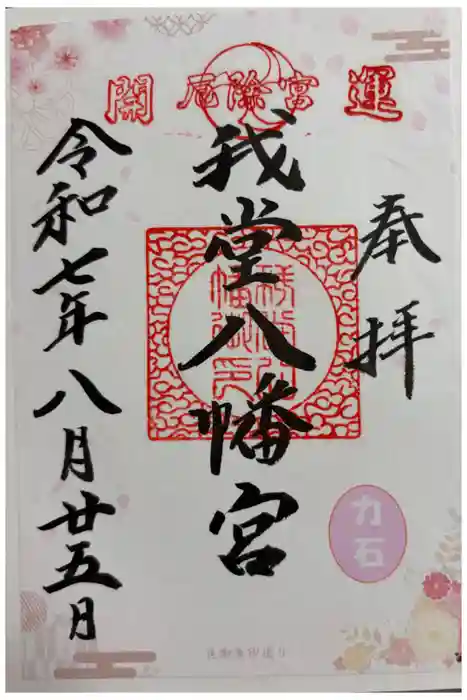 開運
厄除宮
奉拝
我堂八幡宮
令和七年八月廿五日
力石